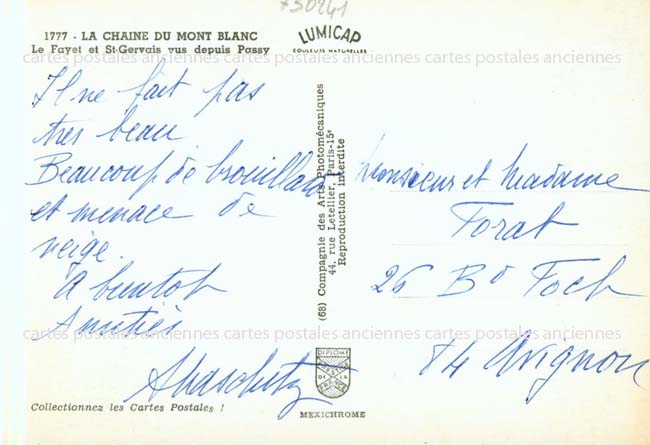 730241
1777 - LA CHAINE DU MONT BLANC
Le Fayet et St-Gervais vus depuis Passy
LUMICAP
COULEURS NATURELLES
cartes postales anciennes cartes postales anciennes cartes postales anciennes
Il ne fait pas
très beau
Beaucoup de brouillard
et menace de
neige.
A bientot
Amitiés
(68) Compagnie des Arts Photomécaniques
44, rue Letellier, Paris-15e
Reproduction interdite
Monsieur et Madame
Forat
26 Bd Foch
84 Avignon
cartes postales anciennes cartes postales anciennes cartes postales anciennes
cartes postales anciennes cartes postales anciennes cartes postales anciennes
DIPLOME
PRESTIGE
DE LA
FRANCE
MEXICHROME
Collectionnez les Cartes Postales !